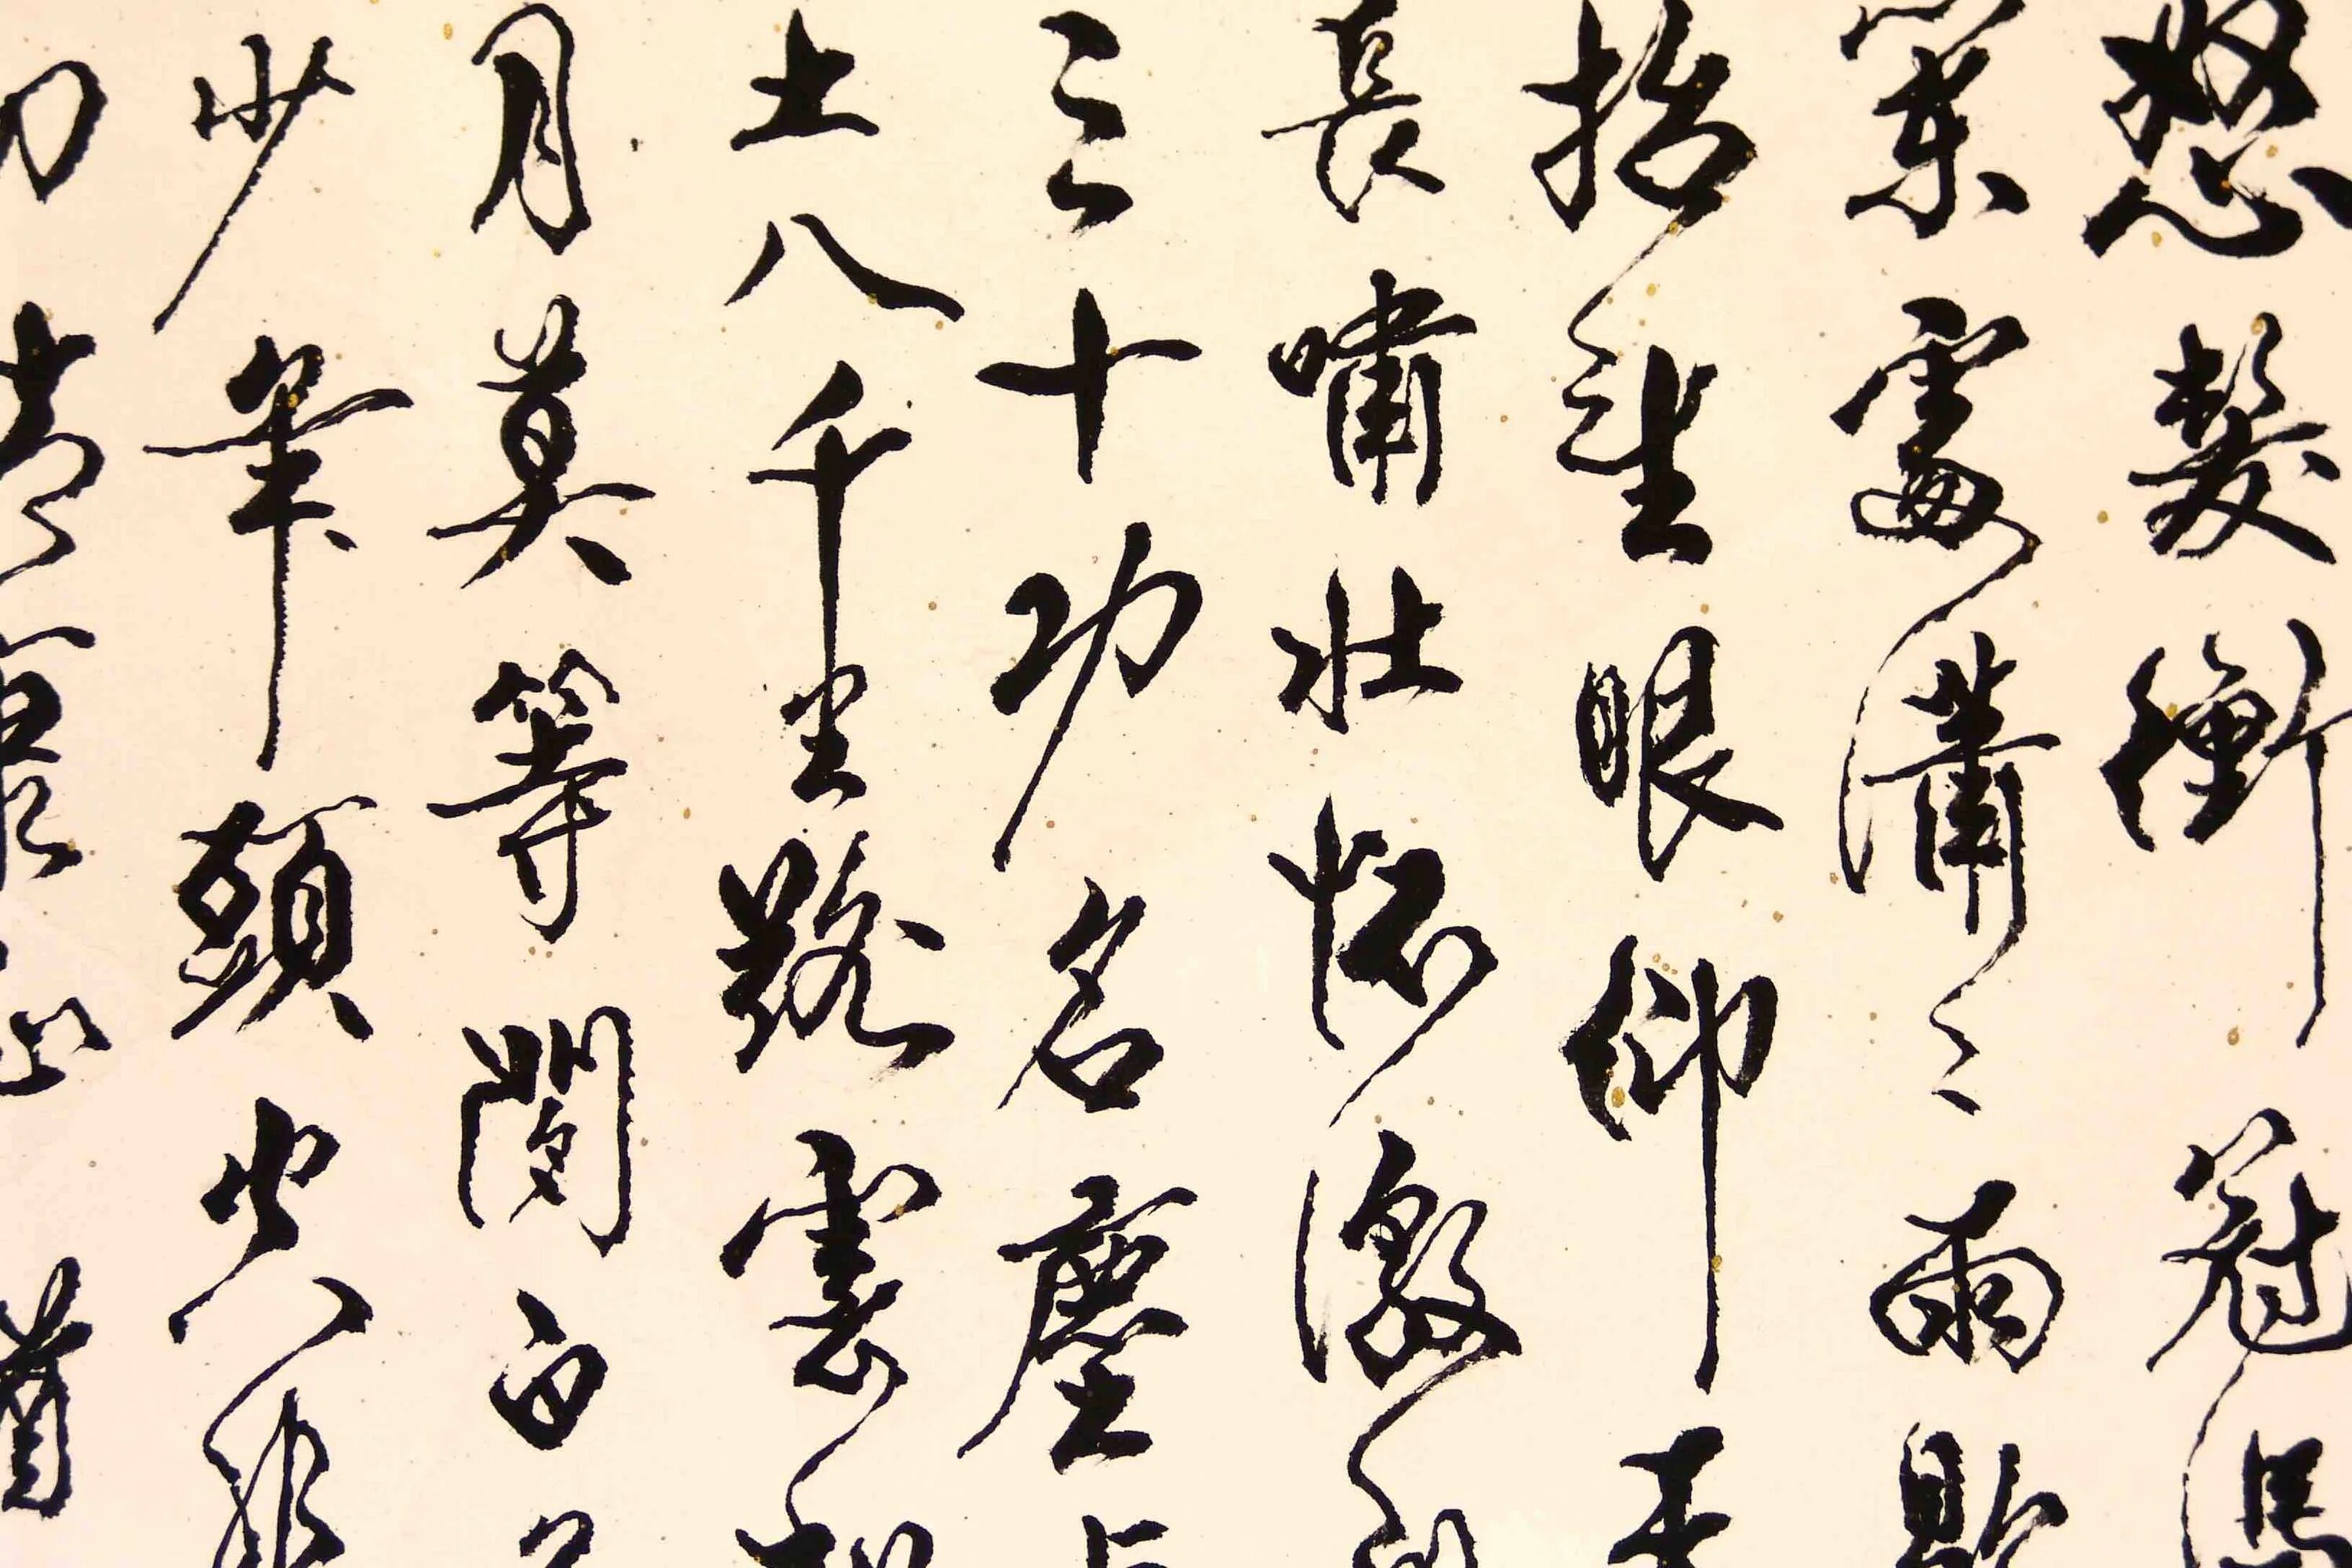 怒髮衝冠憑
闌處瀟〻雨歇
抬望眼仰天
長嘯壯懷激烈
三十功名塵与
土八千里路雲和
月莫等閒白了
少年頭空悲
切靖康恥猶